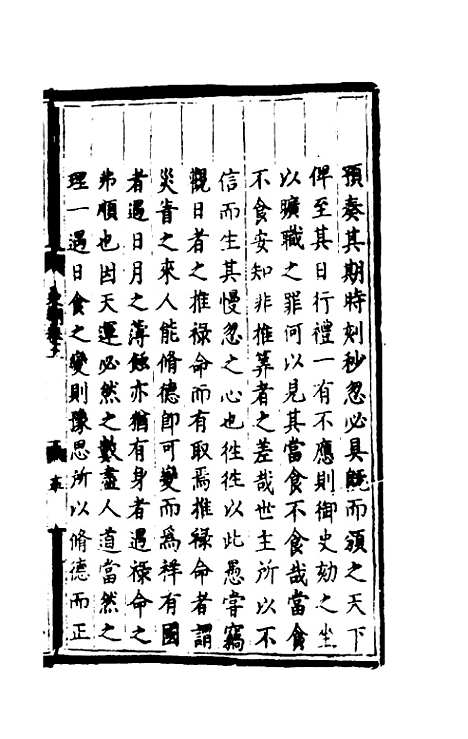 預奏其期時刻秒忽必具既而頒之天下
俾至其日行禮一有不應則御史劾之坐
以曠職之罪何以見其當食不食哉當食
不食安知非推筭者之差哉世主所以不
信而生其慢忽之心也徃徃以此愚嘗竊
觀日者之推祿命而有取焉推祿命者謂
災眚之來人能脩德即可變而爲祥有國
者遇日月之薄蝕亦猶有身者遇祿命之
弗順也因天運必然之數盡人道當然之
理一遇日食之變則豫思所以脩德而正